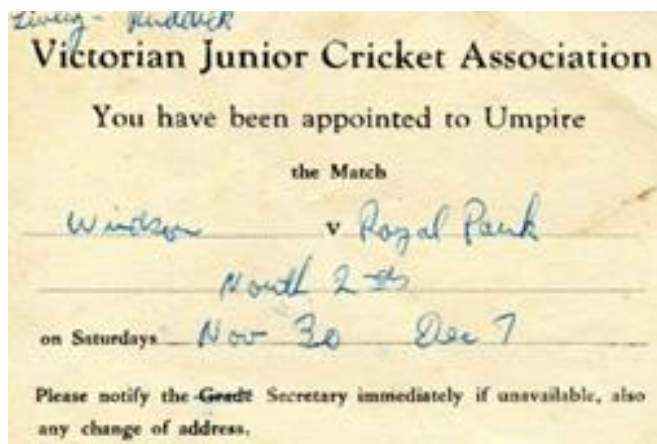 Victorian Junior Cricket Association
You have been appointed to Umpire
the Match
Windsor v Royal Park
North 2nds
on Saturdays Nov 30 Dec 7
Please notify the Grade Secretary immediately if unavailable, also
any change of address.